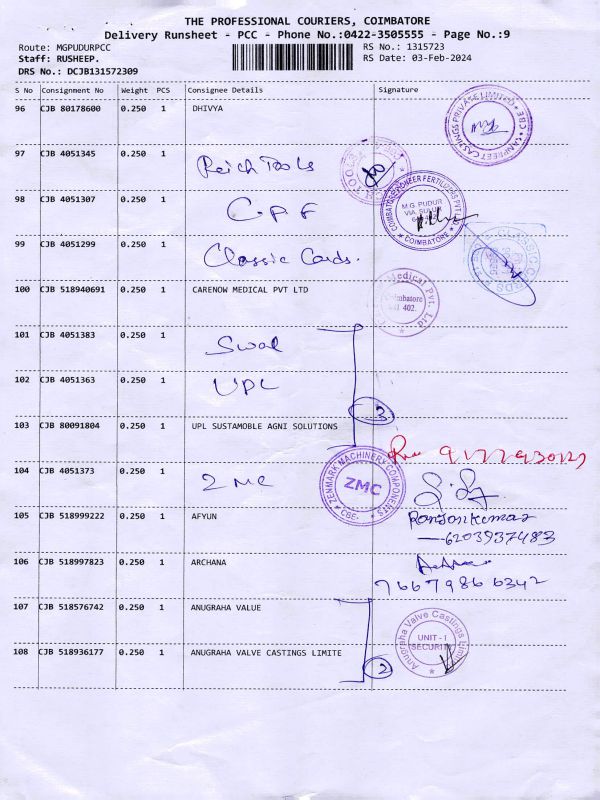 THE PROFESSIONAL COURIERS, COIMBATORE
Delivery Runsheet - PCC - Phone No.:0422-3505555 - Page No.:9
Route: MGPUDURPCC
RS No.: 1315723
Staff: RUSHEEP.
RS Date: 03-Feb-2024
DRS No.: DCJB131572309
S No Consignment No Weight PCS Consignee Details Signature
96 CJB 80178600 0.250 1 DHIVYA
97 CJB 4051345 0.250 1 Reich Tools
98 CJB 4051307 0.250 1 C.P.F
M.G. PUDUR
COIMBATORE
99 CJB 4051299 0.250 1 Classic Cards.
100 CJB 518940691 0.250 1 CARENOW MEDICAL PVT LTD
Medical Pvt. Ltd
402.
101 CJB 4051383 0.250 1 Swal
102 CJB 4051363 0.250 1 UPL
3
103 CJB 80091804 0.250 1 UPL SUSTAMOBLE AGNI SOLUTIONS
104 CJB 4051373 0.250 1 ZMC
ZENMARK MACHINERY COMPONENTS
ZMC
CBE
105 CJB 518999222 0.250 1 AFYUN
6203937483
106 CJB 518997823 0.250 1 ARCHANA
107 CJB 518576742 0.250 1 ANUGRAHA VALUE
Anugraha Valve Castings Limi
UNIT-1
SECURITY
108 CJB 518936177 0.250 1 ANUGRAHA VALVE CASTINGS LIMITE
2